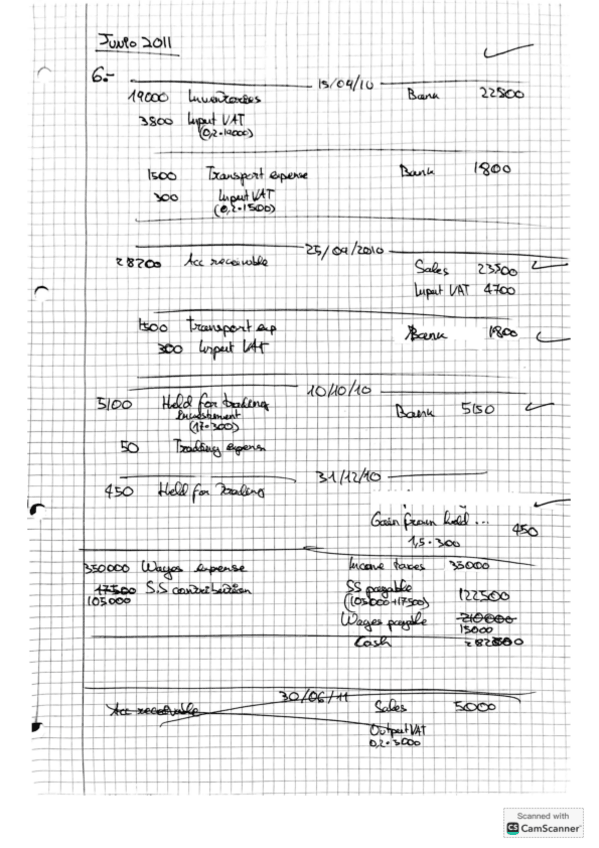 Junio 2011
6.-
15/09/10
19000 Inventories Bank 22800
3800 Input VAT
(0,2·19000)
1500 Transport expense Bank 1800
300 Input VAT
(0,2·1500)
25/09/2010
28200 Acc receivable Sales 23500
Input VAT 4700
1500 Transport exp Bank 1800
300 Input VAT
10/10/10
5100 Held for trading Bank 5150
Investment
(17·300)
50 Trading expens
31/12/10
450 Held for Trading
Gain from held ... 450
1,5·300
350000 Wages expense Income taxes 35000
17500 S.S contribution SS payable 122500
105000 (105000+17500)
Wages payable 210000
15000
Cash
30/06/11
Acc receivable Sales 5000
Output VAT
Scanned with
CS CamScanner